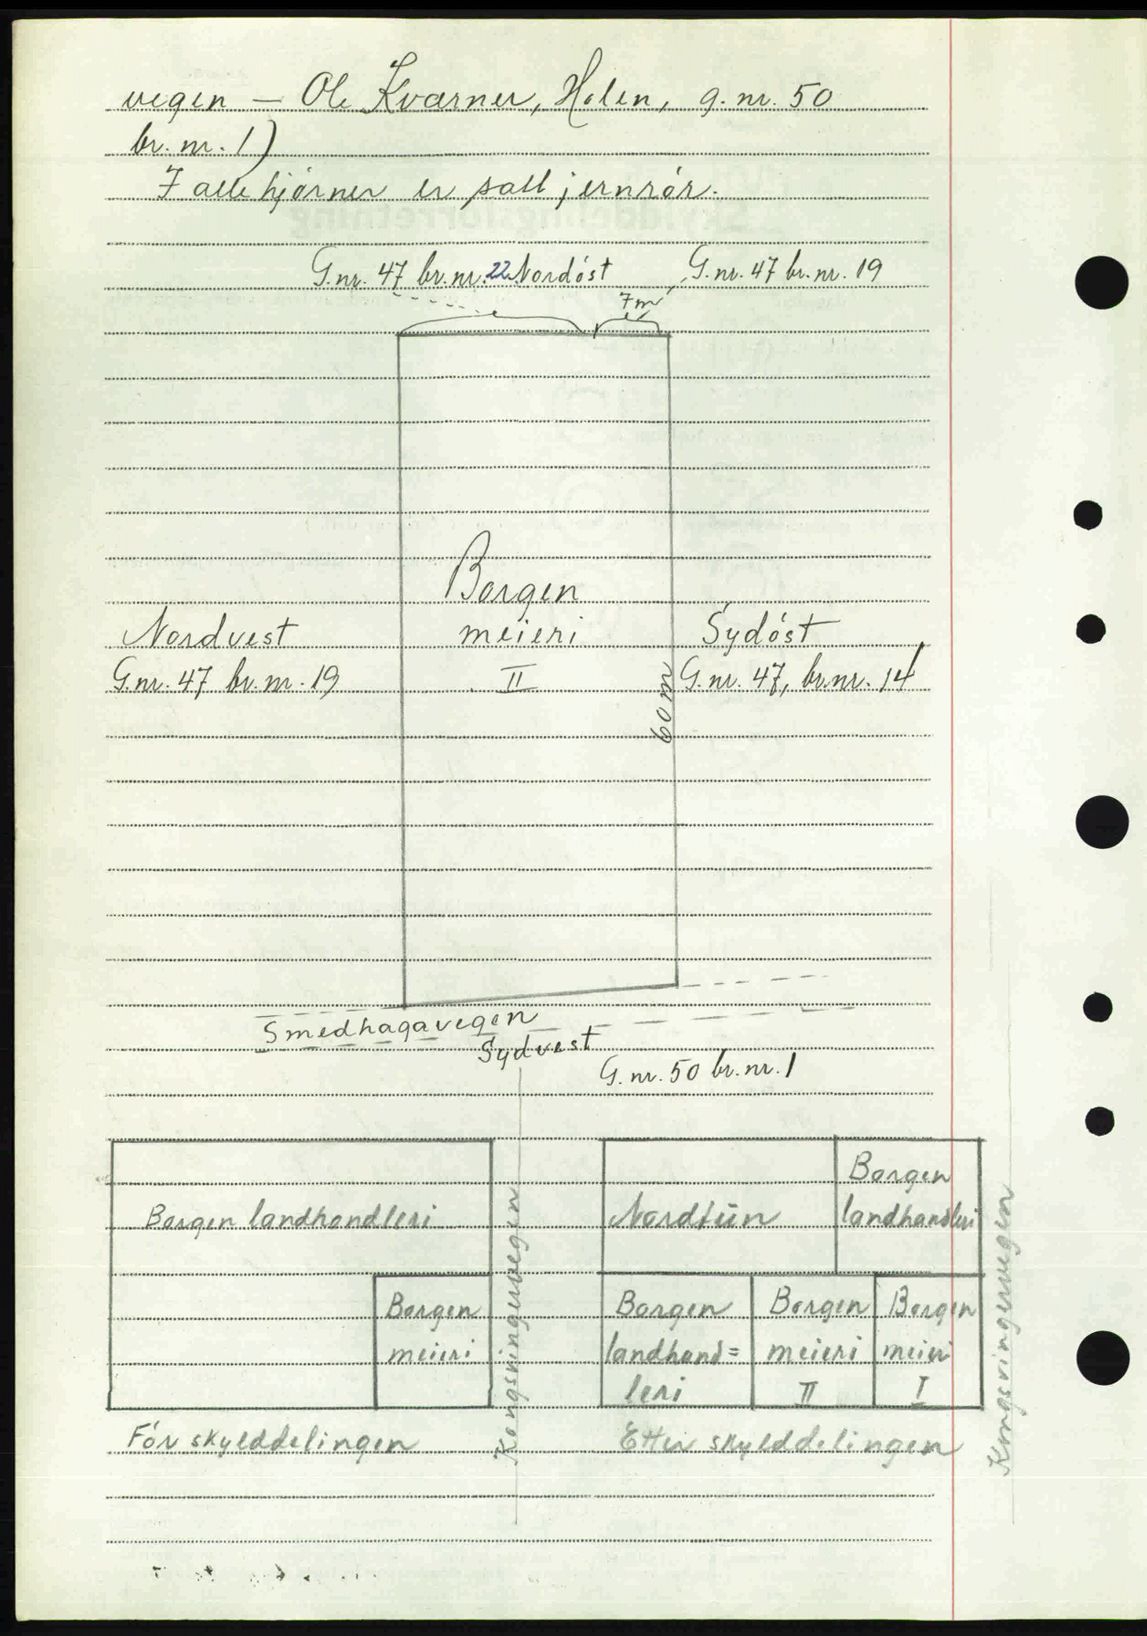 vegen — Ole Kværner, Holen, g. nr. 50
br. nr. 1)
I alle hjørner er satt jernrør.
G.nr. 47 br.nr. 22. Nordøst G.nr. 47 br.nr. 19
7m
Borgen
meieri
II
Nordvest
G.nr. 47 br.nr. 19
Sydøst
G.nr. 47, br.nr. 14
60 m
Smedhagavegen
Sydvest
G.nr. 50 br.nr. 1
Borgen landhandleri
Borgen
meieri
Kongsvingervegen
Nordtun
Borgen
landhandleri
Borgen
landhand=
leri
Borgen
meieri
II
Borgen
meieri
I
Kongsvingervegen
Før skylddelingen
Etter skylddelingen